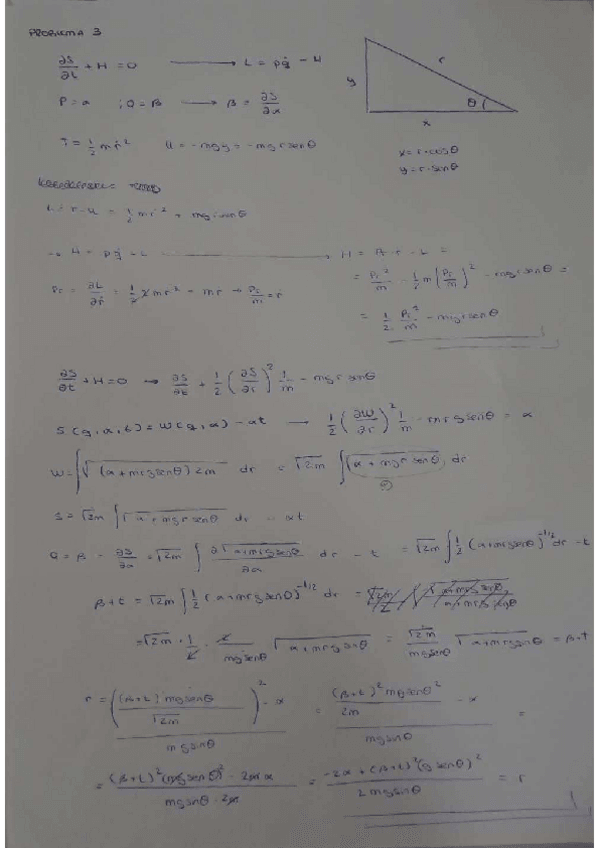 PROBLEMA 3
∂S/∂t + H = 0 → L = pq̇ - H
P = α ; Q = β → β = ∂S/∂α
T = ½ mṙ² U = -mgy = -mg r senθ
y r θ x
x = r · cosθ
y = r · senθ
= ½ mṙ² + mg r senθ
→ H = pq̇ - L → H =
Pr = ∂L/∂ṙ = = mṙ → Pr/m = ṙ
= Pr²/m - ½ m (Pr/m)² - mg r senθ =
= ½ Pr²/m - mg r senθ
∂S/∂t + H = 0 → ∂S/∂t + ½ (∂S/∂r)² 1/m - mg r senθ
S(q, α, t) = W(q, α) - αt → ½ (∂W/∂r)² 1/m - m r g senθ = α
W = ∫√((α + m r g senθ) 2m) dr = √2m ∫√(α + mg r senθ) dr
S = √2m ∫√(α + mg r senθ) dr - αt
Q = β = ∂S/∂α = √2m ∫ ∂√(α + m r g senθ)/∂α dr - t = √2m ∫ ½ (α + m r g senθ)^(-1/2) dr - t
β + t = √2m ∫ ½ (α + m r g senθ)^(-1/2) dr =
= √2m · ½ · 2/(mg senθ) √(α + m r g senθ) = √2m/(mg senθ) √(α + m r g senθ) = β + t
r = (((β + t) mg senθ/√2m)² - α)/(mg senθ) = ((β + t)² mg senθ²/2m - α)/(mg senθ) =
= ((β + t)² (mg senθ)² - 2mα)/(mg senθ · 2m) = (-2α + (β + t)² (g senθ)²)/(2 mg senθ) = r